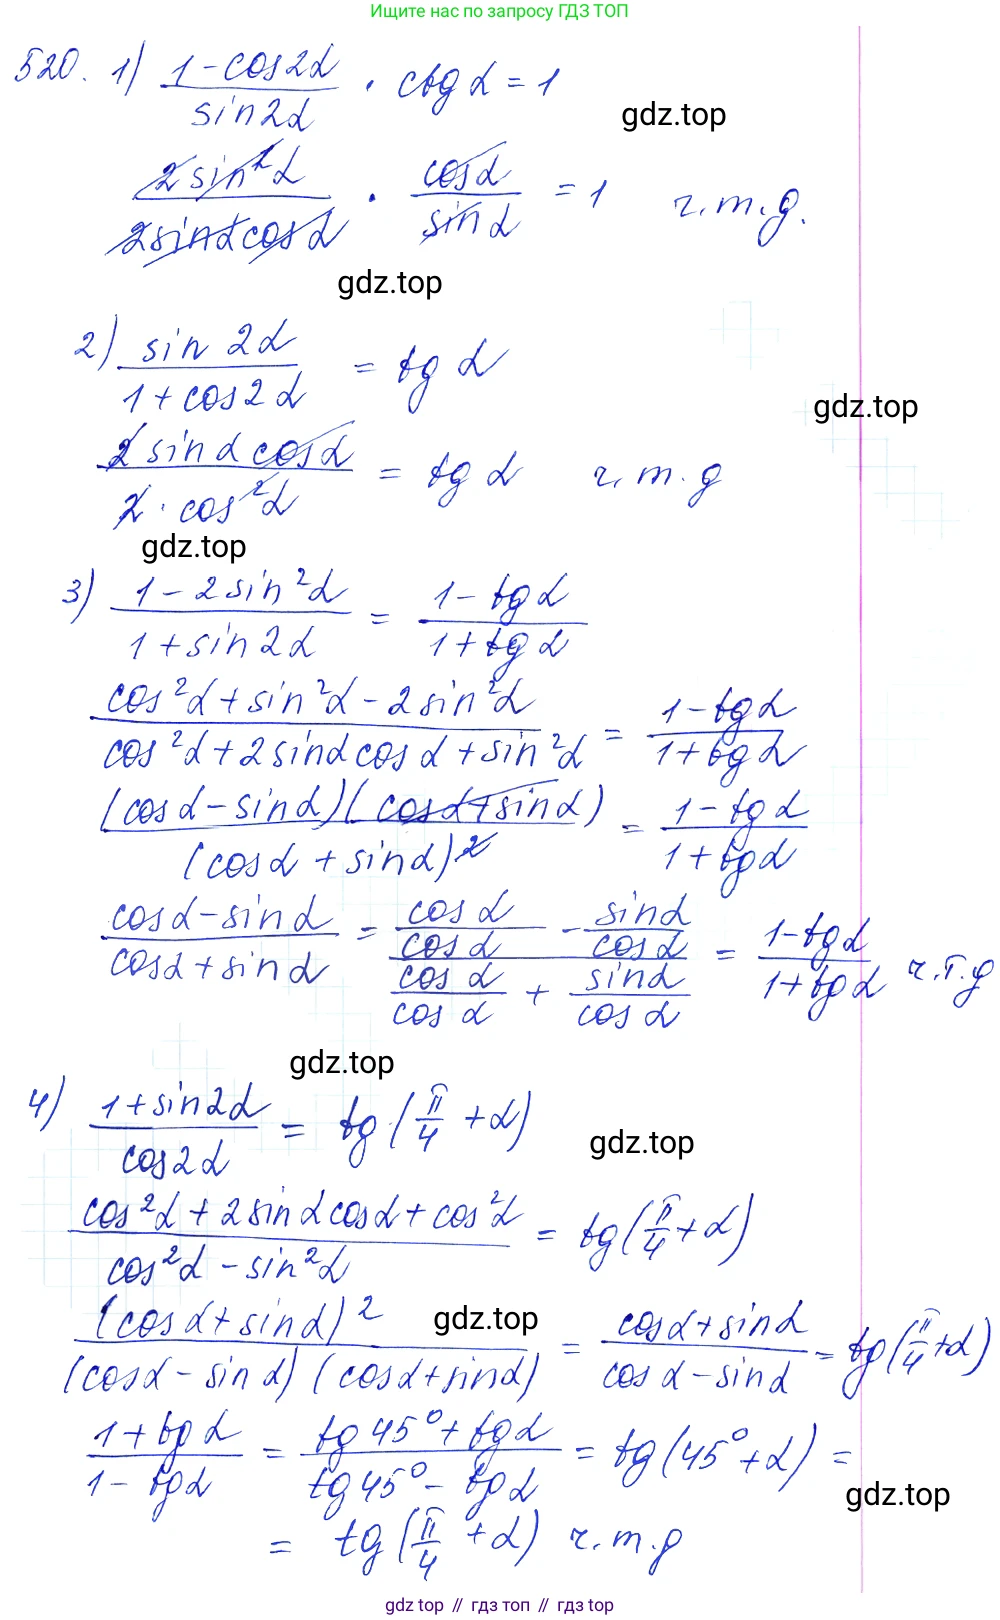 Ищите нас по запросу ГДЗ ТОП
520. 1) (1-cos2α)/(sin2α) · ctg α = 1
gdz.top
(2sin²α)/(2sinαcosα) · (cosα)/(sinα) = 1 ч.т.д.
gdz.top
2) (sin 2α)/(1+cos2α) = tg α
gdz.top
(2sinαcosα)/(2·cos²α) = tg α ч.т.д
gdz.top
3) (1-2sin²α)/(1+sin2α) = (1-tgα)/(1+tgα)
(cos²α+sin²α-2sin²α)/(cos²α+2sinαcosα+sin²α) = (1-tgα)/(1+tgα)
((cosα-sinα)(cosα+sinα))/((cosα+sinα)²) = (1-tgα)/(1+tgα)
(cosα-sinα)/(cosα+sinα) = (cosα/cosα - sinα/cosα)/(cosα/cosα + sinα/cosα) = (1-tgα)/(1+tgα) ч.т.д
gdz.top
4) (1+sin2α)/(cos2α) = tg(π/4 + α)
gdz.top
(cos²α+2sinαcosα+cos²α)/(cos²α-sin²α) = tg(π/4+α)
gdz.top
((cosα+sinα)²)/((cosα-sinα)(cosα+sinα)) = (cosα+sinα)/(cosα-sinα) = tg(π/4+α)
(1+tgα)/(1-tgα) = (tg45°+tgα)/(tg45°-tgα) = tg(45°+α) =
gdz.top
= tg(π/4+α) ч.т.д
gdz.top // гдз.топ // гдз.top